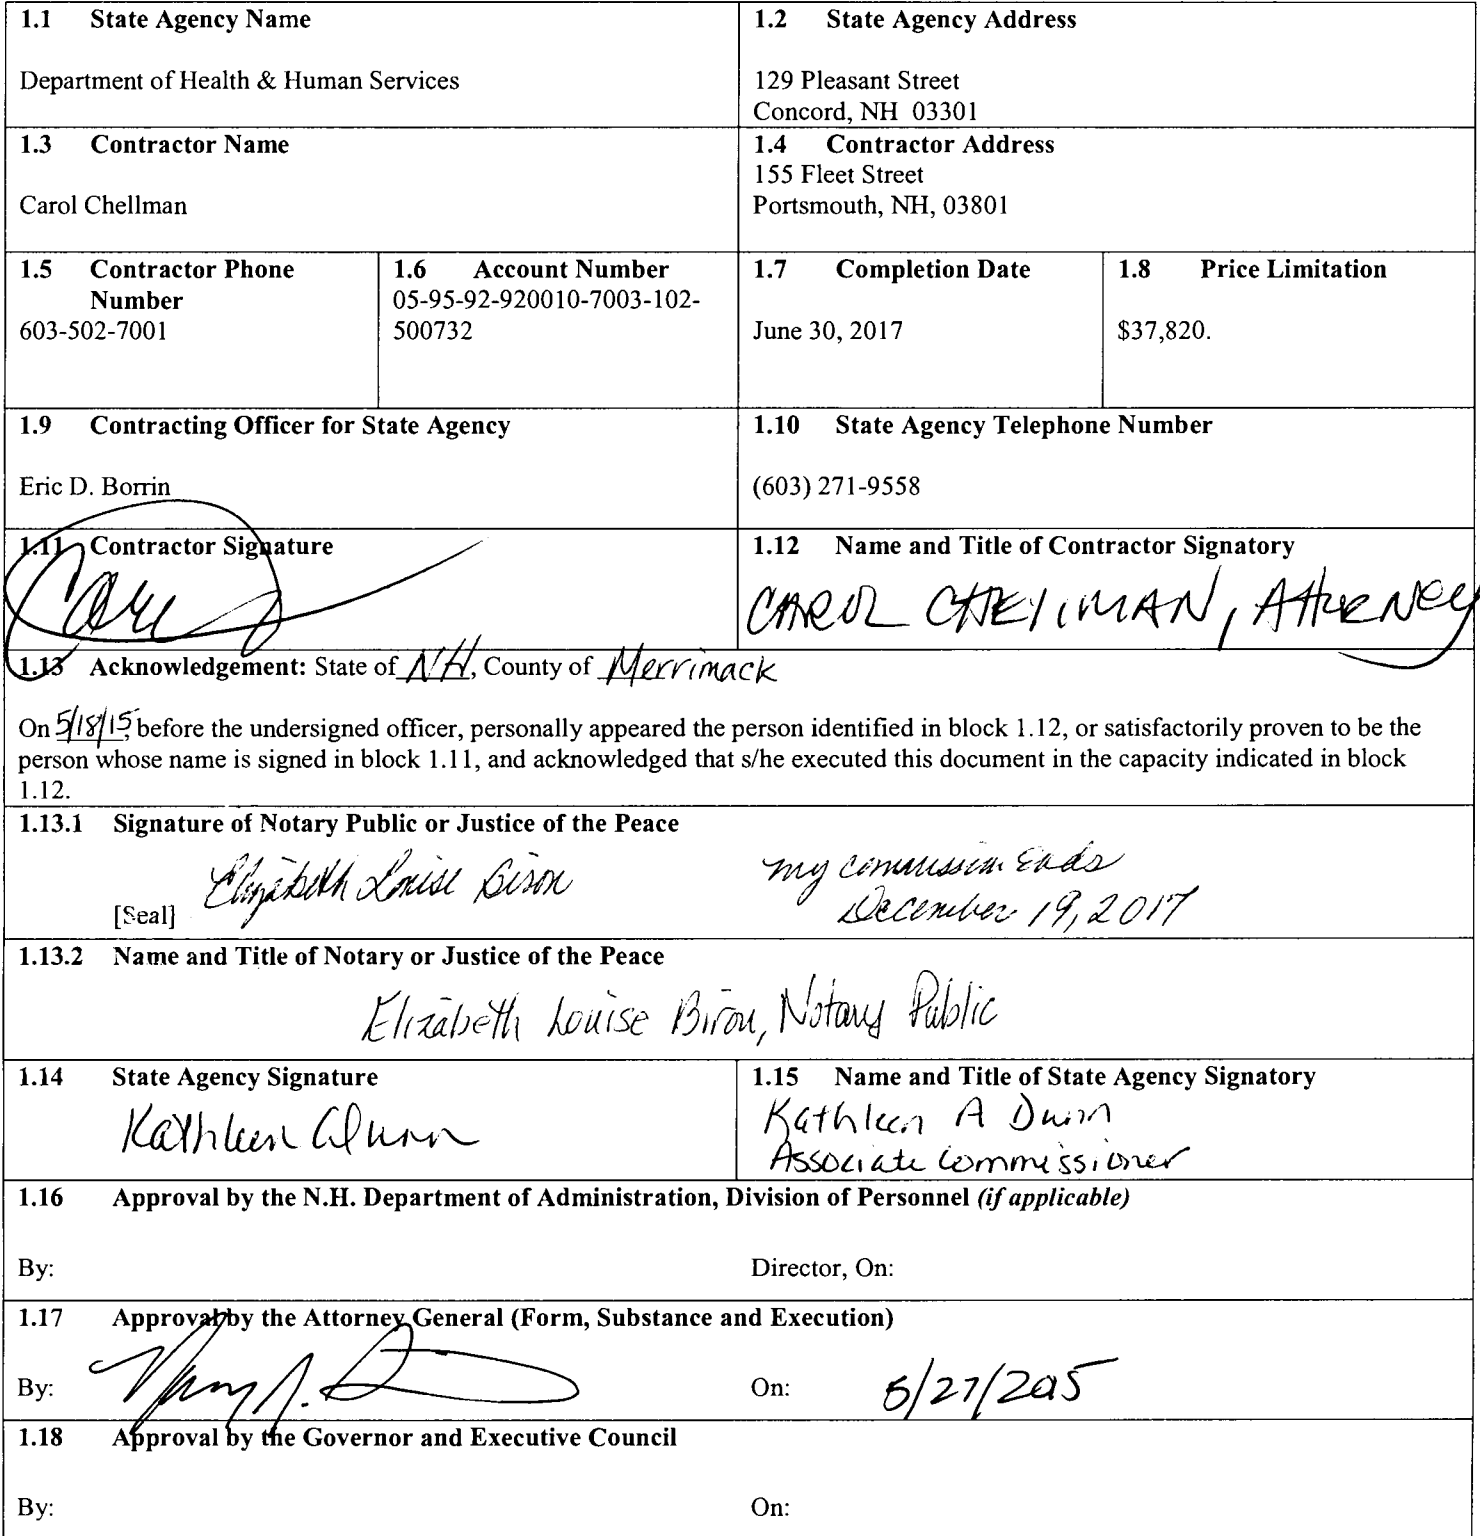 1.1 State Agency Name
Department of Health & Human Services
1.2 State Agency Address
129 Pleasant Street
Concord, NH 03301
1.3 Contractor Name
Carol Chellman
1.4 Contractor Address
155 Fleet Street
Portsmouth, NH, 03801
1.5 Contractor Phone
Number
603-502-7001
1.6 Account Number
05-95-92-920010-7003-102-
500732
1.7 Completion Date
June 30, 2017
1.8 Price Limitation
$37,820.
1.9 Contracting Officer for State Agency
Eric D. Borrin
1.10 State Agency Telephone Number
(603) 271-9558
1.11 Contractor Signature
1.12 Name and Title of Contractor Signatory
CAROL CHELLMAN, ATTORNEY
1.13 Acknowledgement: State of NH, County of Merrimack
On 5/18/15, before the undersigned officer, personally appeared the person identified in block 1.12, or satisfactorily proven to be the
person whose name is signed in block 1.11, and acknowledged that s/he executed this document in the capacity indicated in block
1.12.
1.13.1 Signature of Notary Public or Justice of the Peace
Elizabeth Louise Biron my commission Ends
[Seal] December 19, 2017
1.13.2 Name and Title of Notary or Justice of the Peace
Elizabeth Louise Biron, Notary Public
1.14 State Agency Signature
Kathleen A Dunn
1.15 Name and Title of State Agency Signatory
Kathleen A Dunn
Associate Commissioner
1.16 Approval by the N.H. Department of Administration, Division of Personnel (if applicable)
By: Director, On:
1.17 Approval by the Attorney General (Form, Substance and Execution)
By: On: 5/27/2015
1.18 Approval by the Governor and Executive Council
By: On: